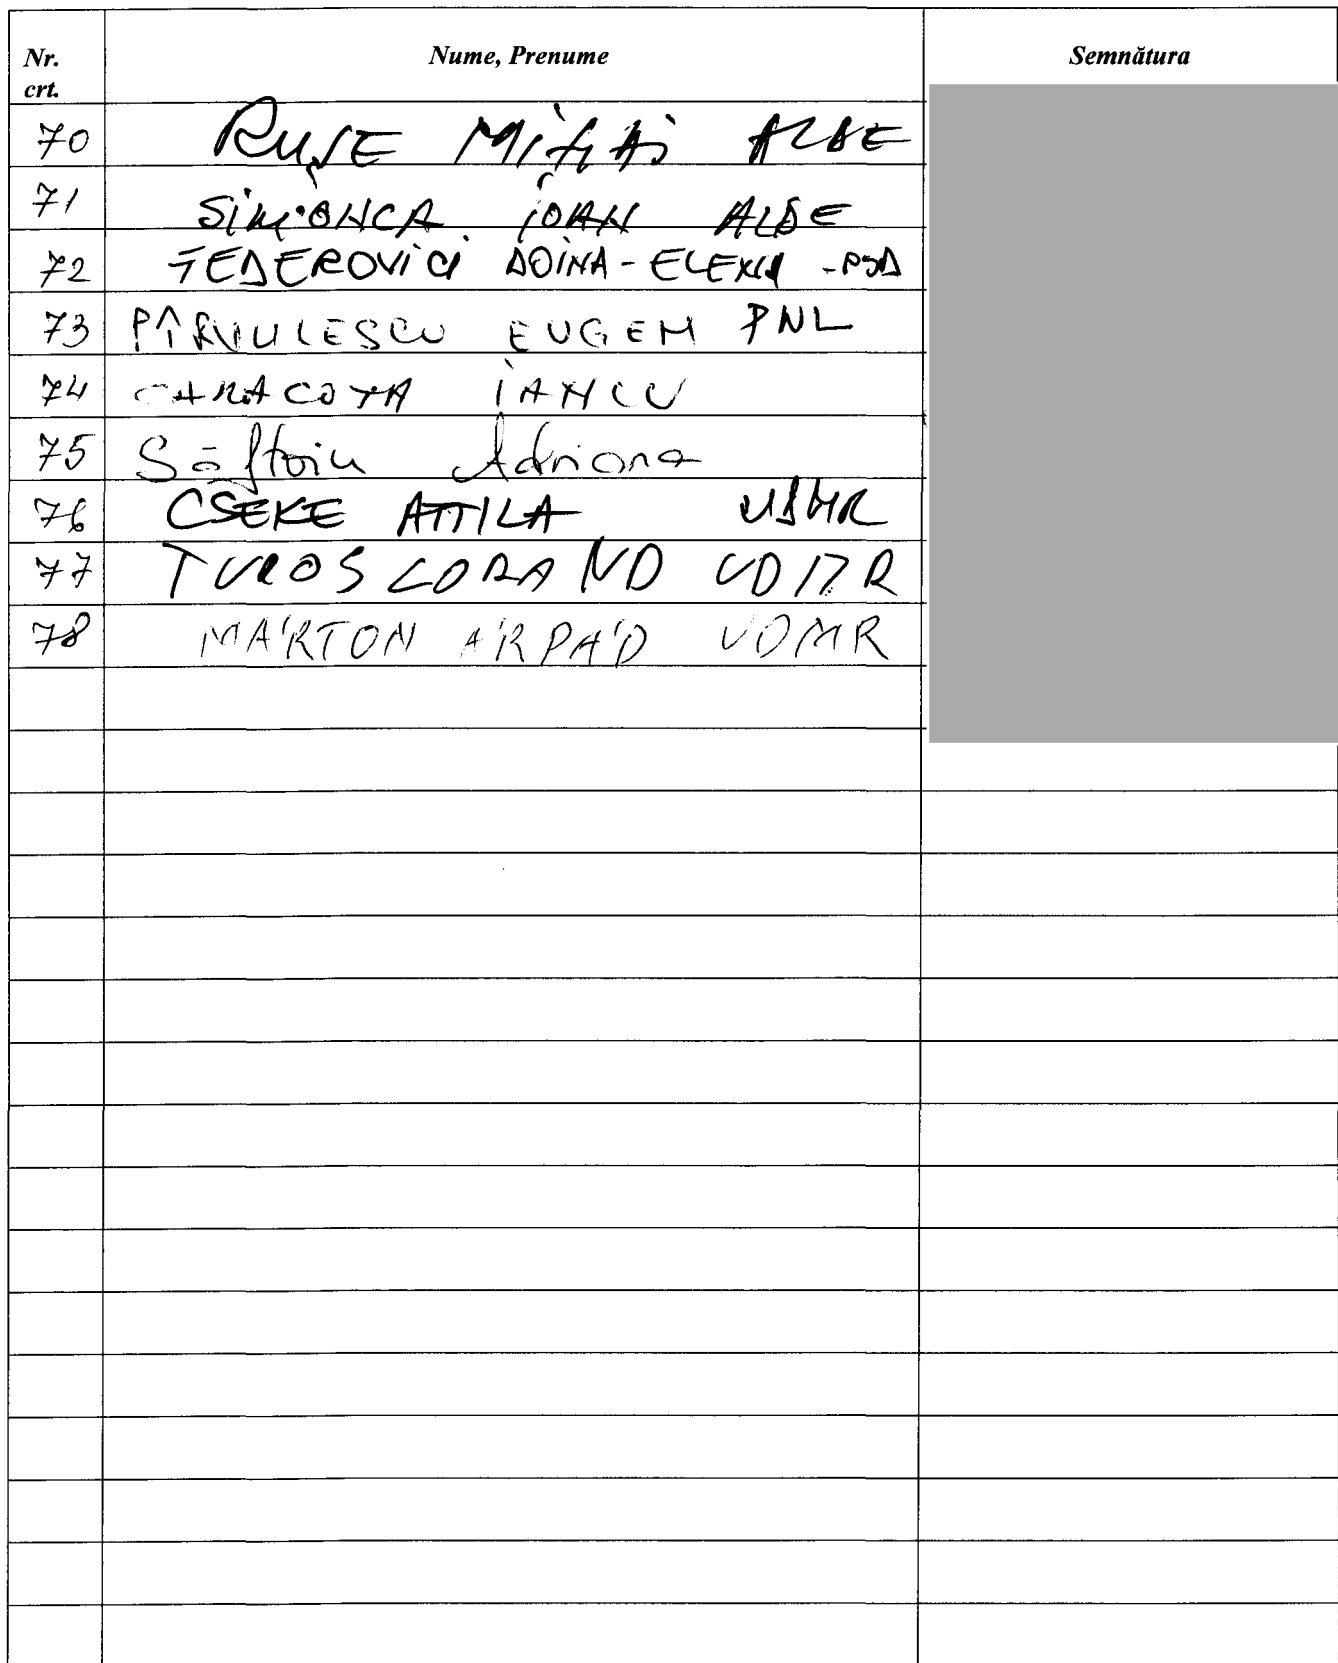 Nr. crt. Nume, Prenume Semnătura
70 RUSE MIHAI ALDE
71 SIMIONCA IOAN ALDE
72 FEDEROVICI DOINA-ELENA -PSD
73 PÎRVULESCU EUGEN PNL
74 CARACOTA IANCU
75 Săftoiu Adriana
76 CSEKE ATTILA UDMR
77 TUROS LORAND UDMR
78 MÁRTON ÁRPÁD UDMR